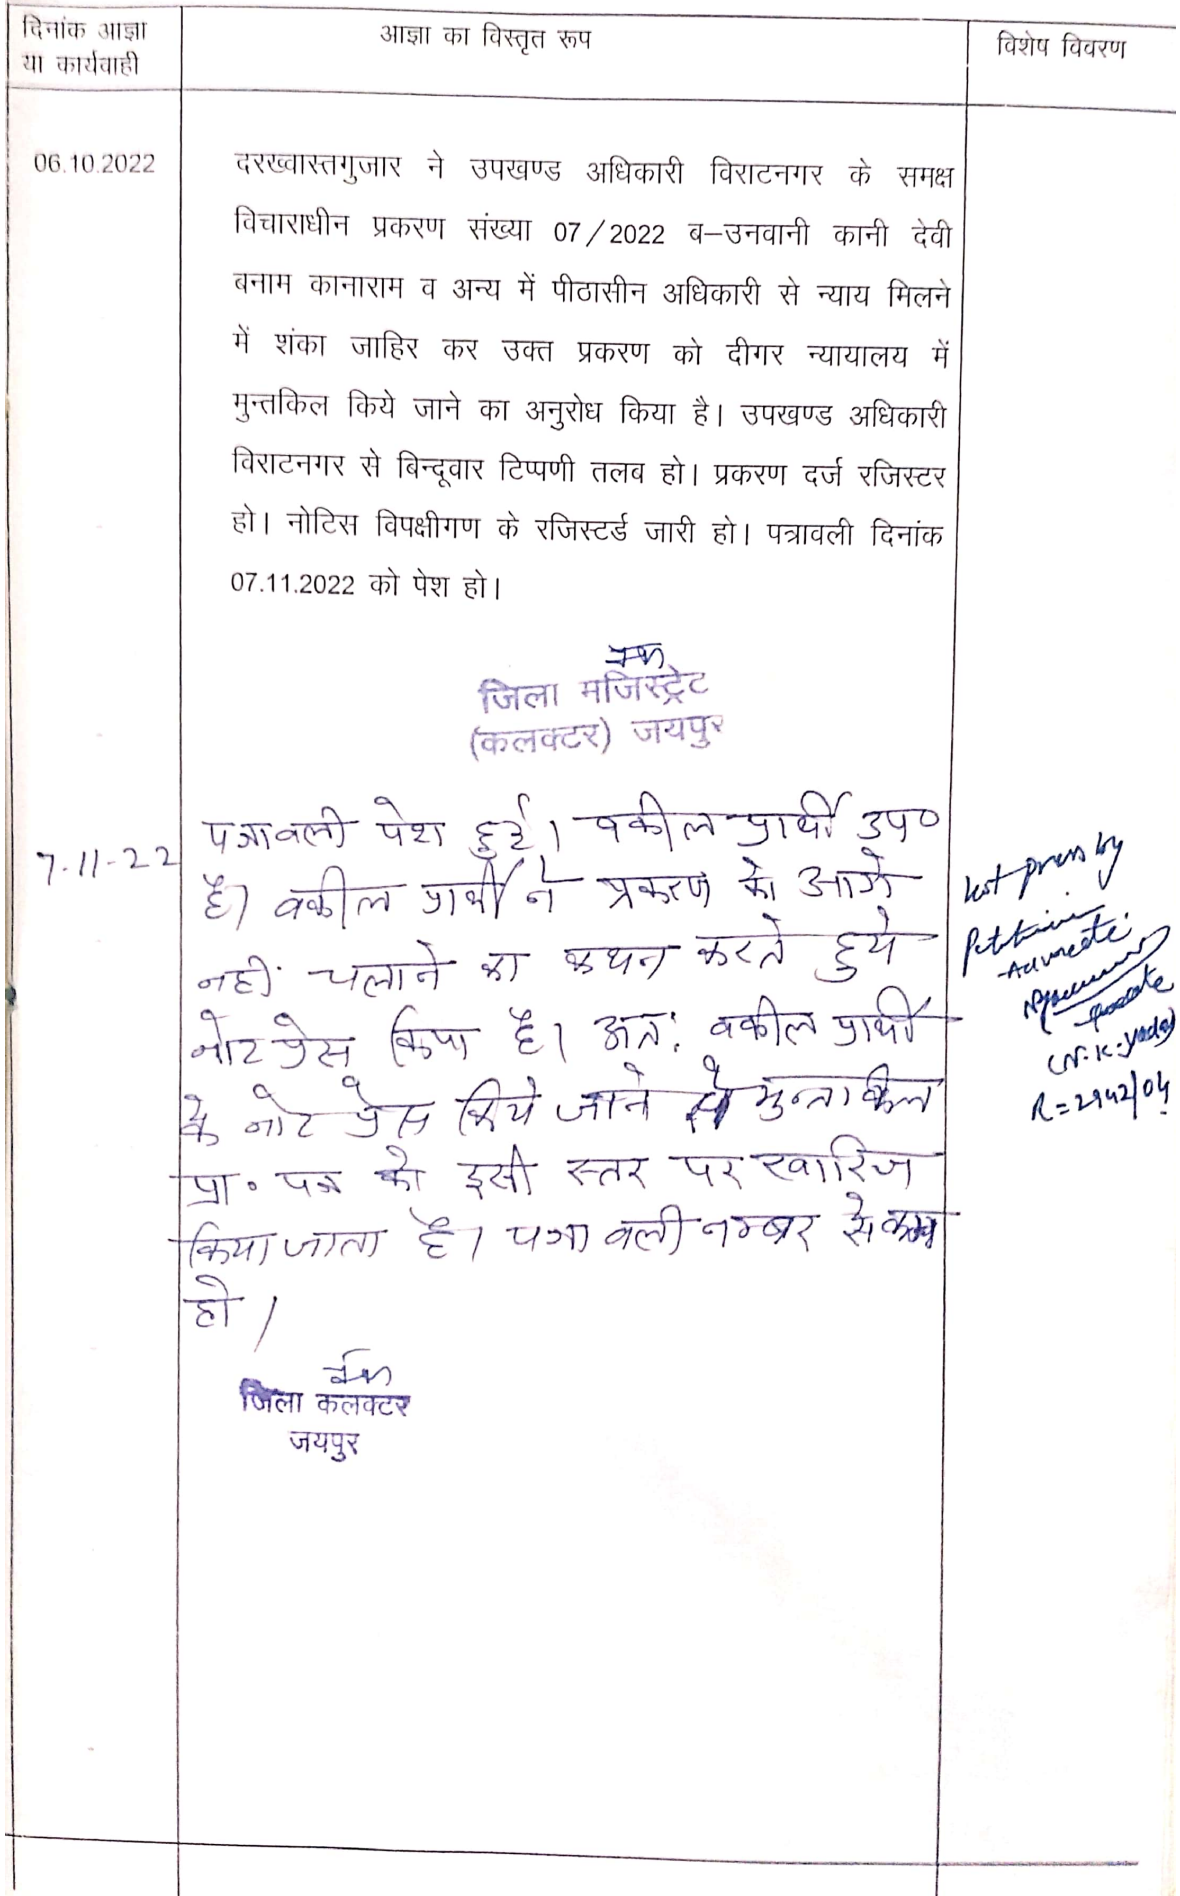 दिनांक आज्ञा
या कार्यवाही
आज्ञा का विस्तृत रूप
विशेष विवरण
06.10.2022
दरख्वास्तगुजार ने उपखण्ड अधिकारी विराटनगर के समक्ष
विचाराधीन प्रकरण संख्या 07/2022 ब-उनवानी कानी देवी
बनाम कानाराम व अन्य में पीठासीन अधिकारी से न्याय मिलने
में शंका जाहिर कर उक्त प्रकरण को दीगर न्यायालय में
मुन्तकिल किये जाने का अनुरोध किया है। उपखण्ड अधिकारी
विराटनगर से बिन्दूवार टिप्पणी तलब हो। प्रकरण दर्ज रजिस्टर
हो। नोटिस विपक्षीगण के रजिस्टर्ड जारी हो। पत्रावली दिनांक
07.11.2022 को पेश हो।
जिला मजिस्ट्रेट
(कलक्टर) जयपुर
7-11-22
पत्रावली पेश हुई। वकील प्रार्थी उप०
है। वकील प्रार्थी ने प्रकरण को आगे
नहीं चलाने का कथन करते हुये
नोट प्रेस किया है। अतः वकील प्रार्थी
के नोट प्रेस किये जाने से मुन्तकिल
प्रा० पत्र को इसी स्तर पर खारिज
किया जाता है। पत्रावली नम्बर से कम
हो।
जिला कलक्टर
जयपुर
Not press by
Petitioner
Advocate
(N.K. Yadav
R=2942/04